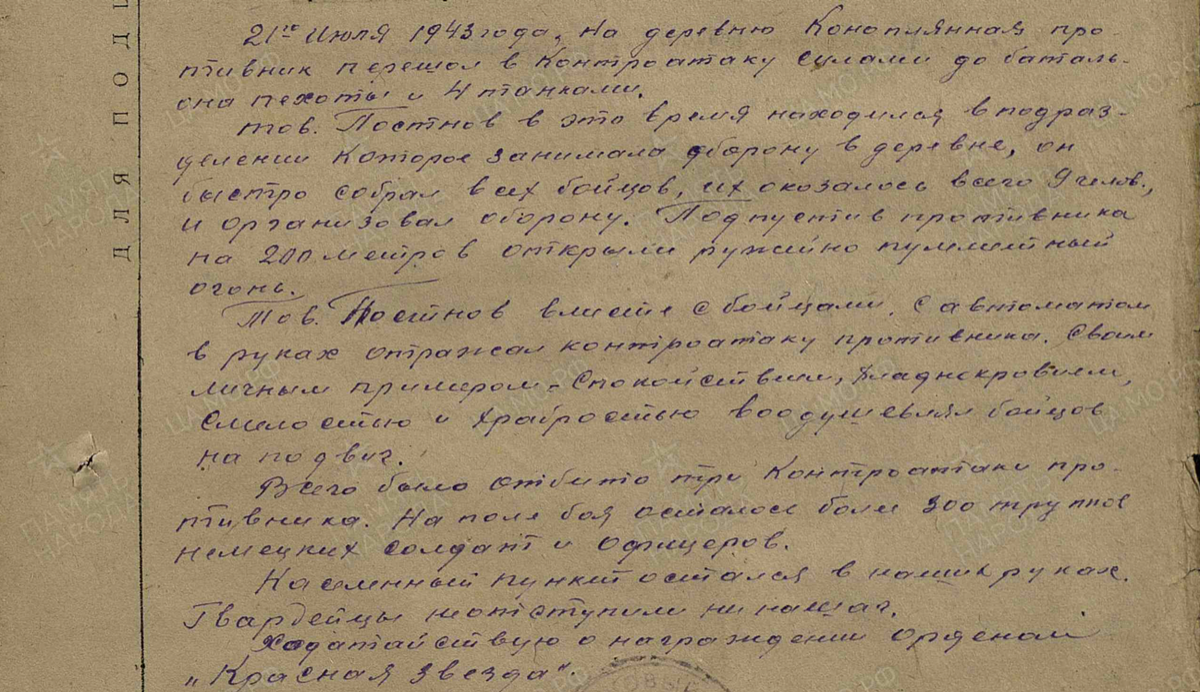 21го Июля 1943 года, на деревню Коноплянная про-
тивник перешол в контроатаку силами до баталь-
она пехоты и 4 танками.
тов. Постнов в это время находился в подраз-
делении которое занимала оборону в деревне, он
быстро собрал всех бойцов, их окозалось всего 9 челов.,
и организовал оборону. Подпустив противника
на 200 метров открыли ружейно пулеметный
огонь.
Тов. Постнов вместе с бойцами, с автоматом
в руках отражал контроатаку противника. Своим
личным примером - спокойствием, хладнокровием,
смелостью и храбростью воодушевлял бойцов
на подвиг.
Всего было отбито три контроатаки про-
тивника. На поле боя осталось боле 300 трупов
немецких солдат и офицеров.
Населенный пункт остался в наших руках.
Гвардейцы не отступили ни на шаг.
Ходатайствую о награждении орденом
„Красная звезда".
ДЛЯ ПОД
ПАМЯТЬ НАРОДА
ЦАМО.РФ